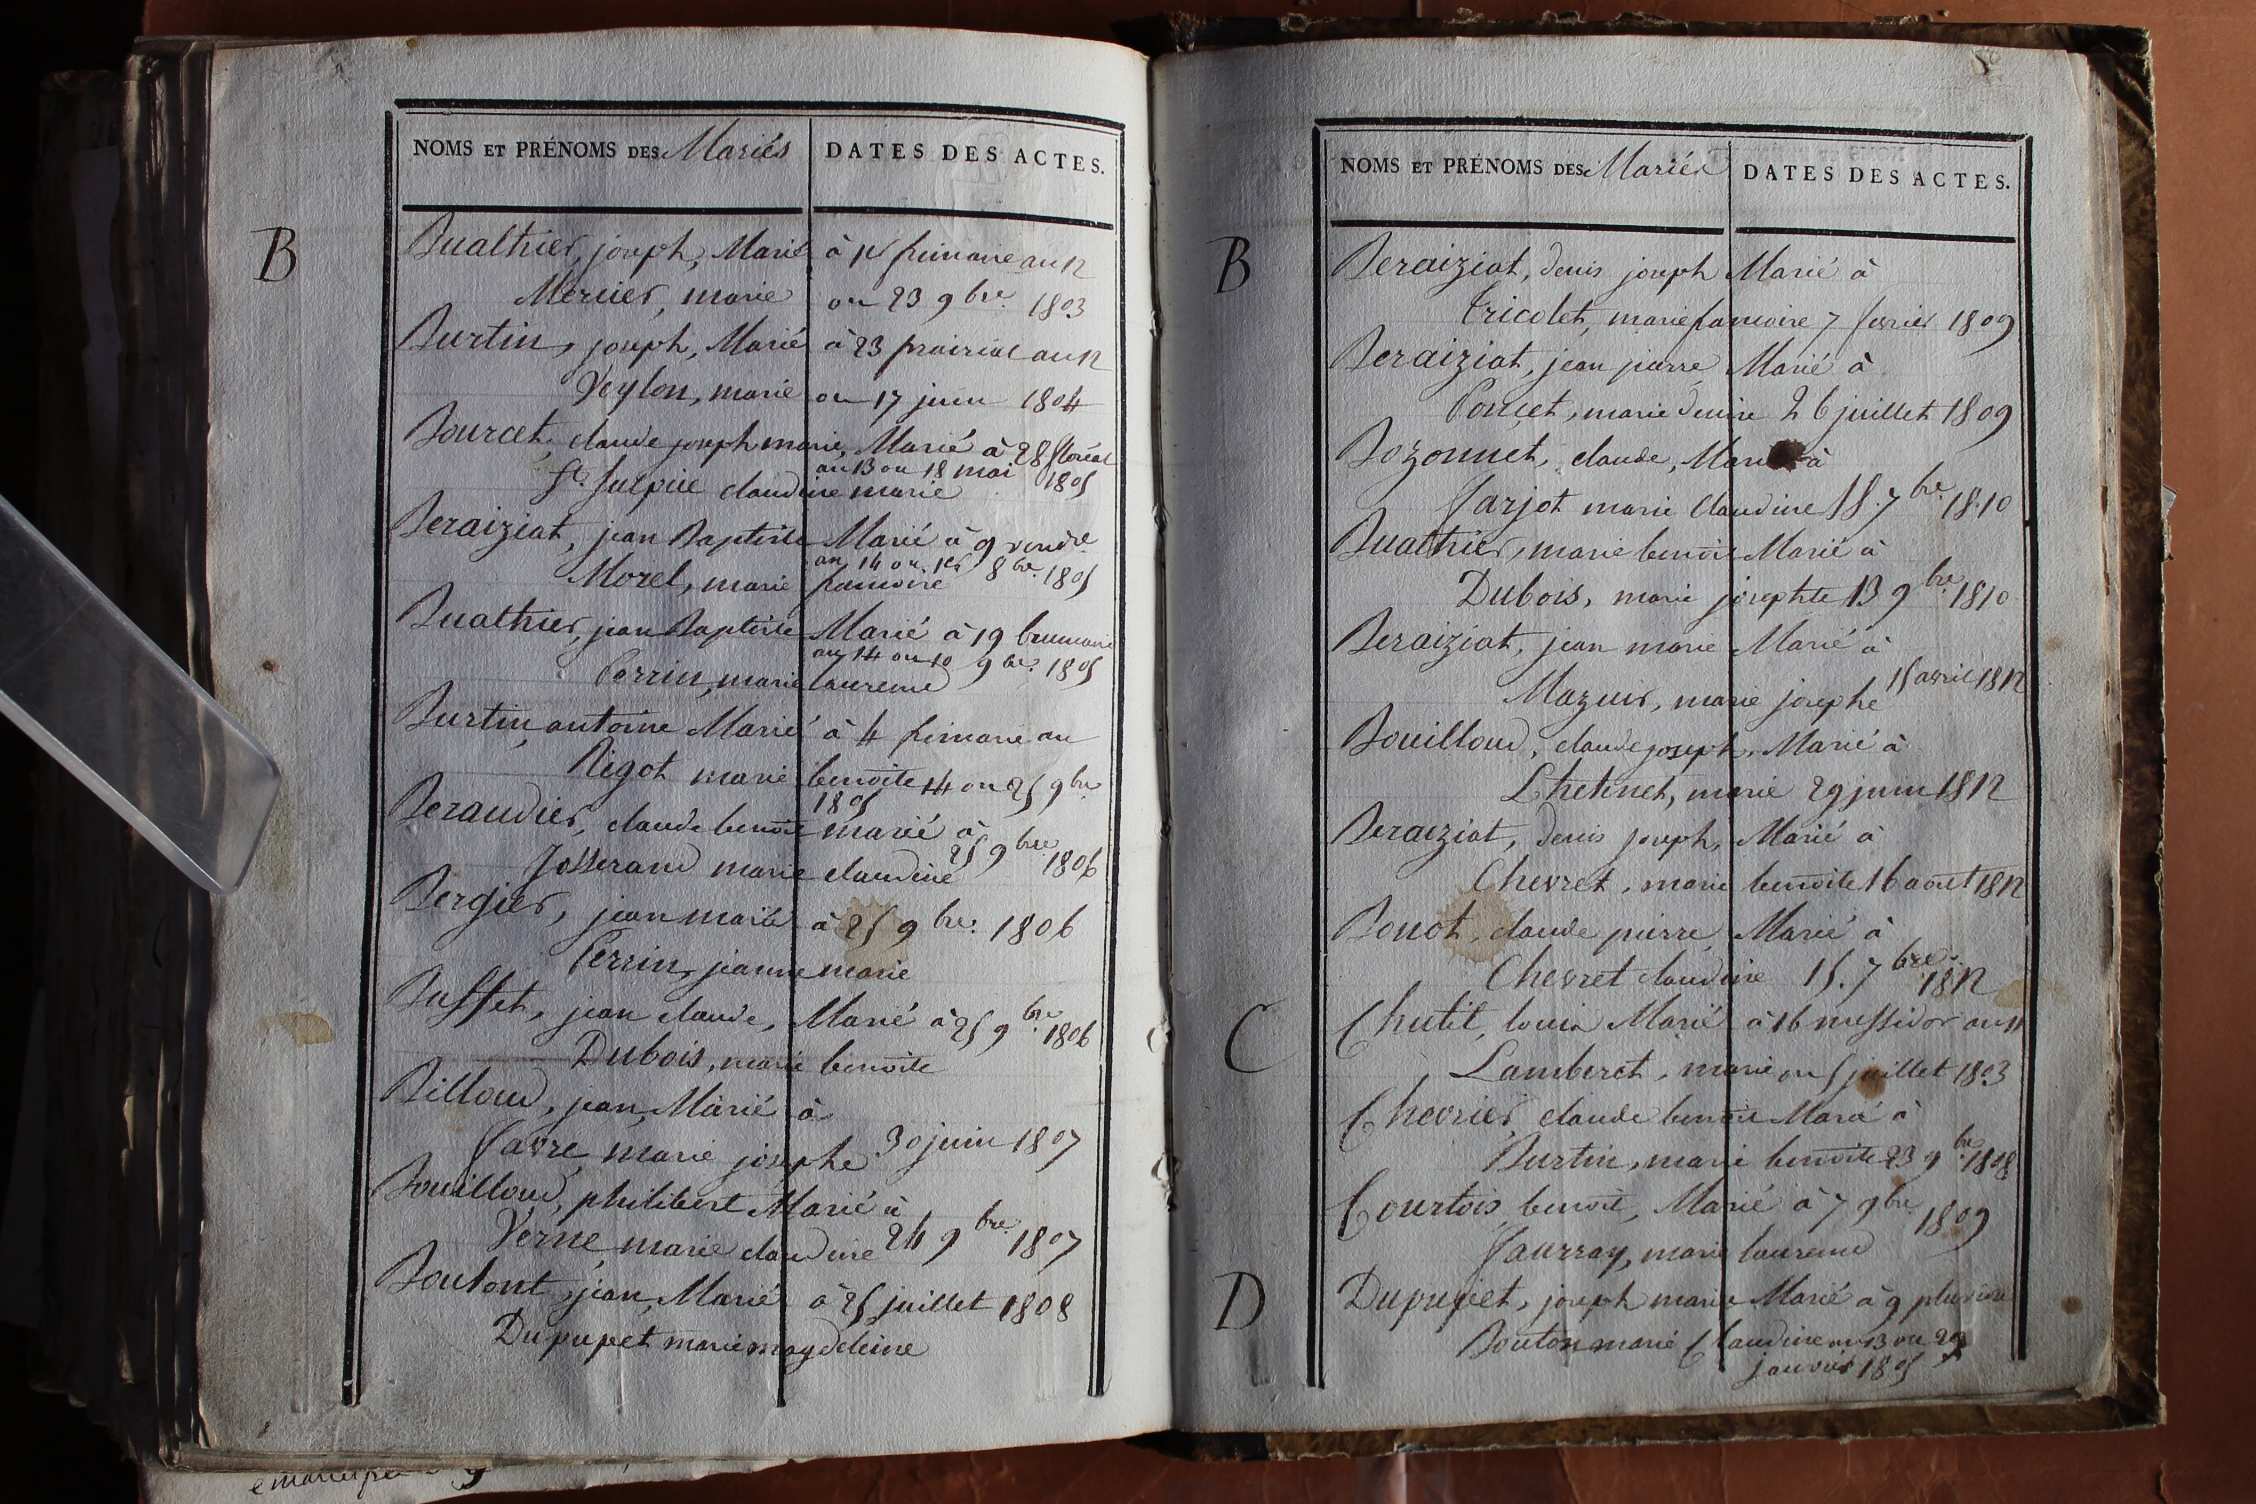 NOMS ET PRÉNOMS DES Mariés DATES DES ACTES.
B
Bualthier, joseph, Marié à 1er frimaire an 12
Mercier, marie ou 23 9bre 1803
Burtin, joseph, Marié à 23 prairial an 12
Veylon, marie ou 17 juin 1804
Bourcet, claude joseph marie, Marié à 28 floréal
an 13 ou 18 mai 1805
St. Sulpice claudine marie
Beraiziat, jean Baptiste Marié à 9 vendre
an 14 ou 1er 8bre 1805
Morel, marie francoise
Bualthier, jean Baptiste Marié à 19 brumaire
an 14 ou 10 9bre 1805
Perrin, marie laurence
Burtin antoine Marié à 4 frimaire an
Rigot marie benoite 14 ou 25 9bre
1805
Beraudier, claude benoit marié à
25 9bre 1806
Josserand marie claudine
Bergier, jean marié à 25 9bre 1806
Perrin, jeanne marie
Buffet, jean claude, Marié à 25 9bre 1806
Dubois, marie benoite
Billoud, jean, Marié à
Favre, marie josephe 30 juin 1807
Bouilloud, philibert Marié à
Verne, marie claudine 24 9bre 1807
Boutont, jean, Marié à 25 juillet 1808
Dupupet marie magdeleine
NOMS ET PRÉNOMS DES Mariés DATES DES ACTES.
B
Beraiziat, denis joseph Marié à
Tricolet, marie francoise 7 fevrier 1809
Beraiziat, jean pierre, Marié à
Poncet, marie denise 26 juillet 1809
Bozonnet, claude, Marié à
Farjot marie Claudine 18. 7bre 1810
Bualthier, marie benoit Marié à
Dubois, marie josephte 13 9bre 1810
Beraiziat, jean marie Marié à
Mazuir, marie josephe 15 avril 1812
Bouilloud, claude joseph, Marié à
Lhetinet, marie 29 juin 1812
Beraiziat, denis joseph, Marié à
Chevret, marie benoite 16 aout 1812
Bonot, claude pierre, Marié à
Chevret claudine 15. 7bre 1812
C
Chutit, louis Marié à 16 messidor an 11
Lamberet, marie ou 5 juillet 1803
Chevrier, claude benoit Marié à
Burtin, marie benoite 23 9bre 1808
Courtois, benoit, Marié à 7 9bre 1809
Jaurray, marie laurence
D
Dupupet, joseph marie Marié à 9 pluviose
Bouton marie Claudine an 13 ou 29
janvier 1805